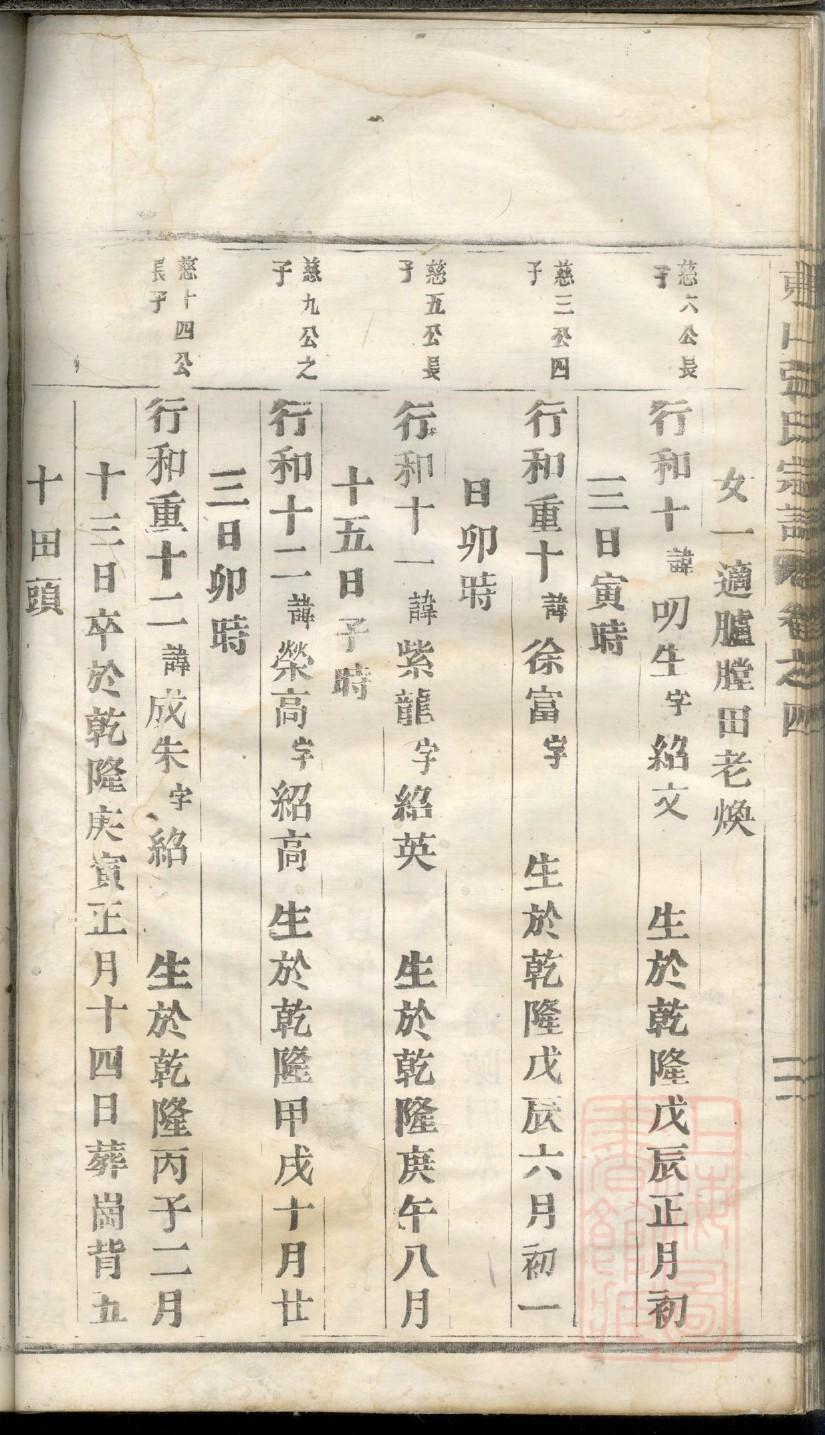 卷之四
女一適臚膛田老煥
慈六公長
子
行和十諱叨生字紹文 生於乾隆戊辰正月初
三日寅時
慈三公四
子
行和重十諱徐富字 生於乾隆戊辰六月初一
日卯時
慈五公長
子
行和十一諱紫龍字紹英 生於乾隆庚午八月
十五日子時
慈九公之
子
行和十二諱榮高字紹高生於乾隆甲戌十月廿
三日卯時
慈十四公
長子
行和重十二諱成朱字紹 生於乾隆丙子二月
十三日卒於乾隆庚寅正月十四日葬崗背五
十田頭